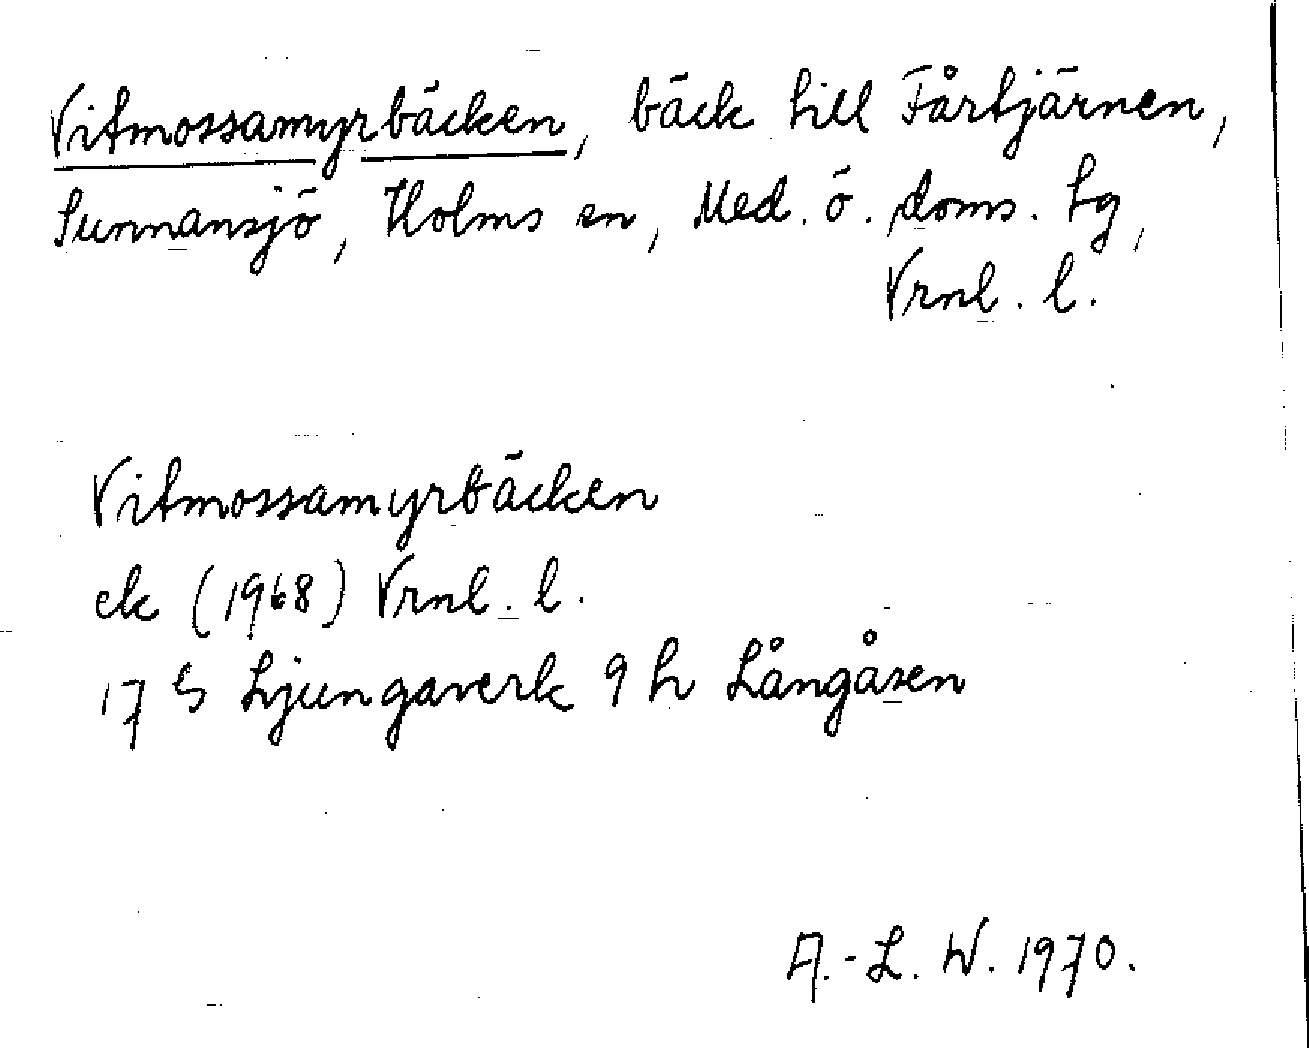 Vitmossamyrbäcken, bäck till Fårtjärnen,
Sunnansjö, Holms sn, Med. ö. doms. tg,
Vrnl. l.
Vitmossamyrbäcken
ek (1968) Vrnl. l.
17 G Ljungaverk 9 h Långåsen
A.-L. W. 1970.